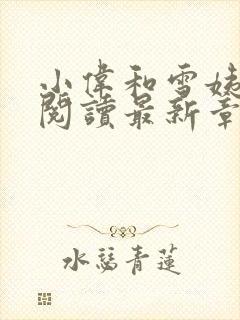 小偉和雪姨
閱讀最新章
水瑟青蓮